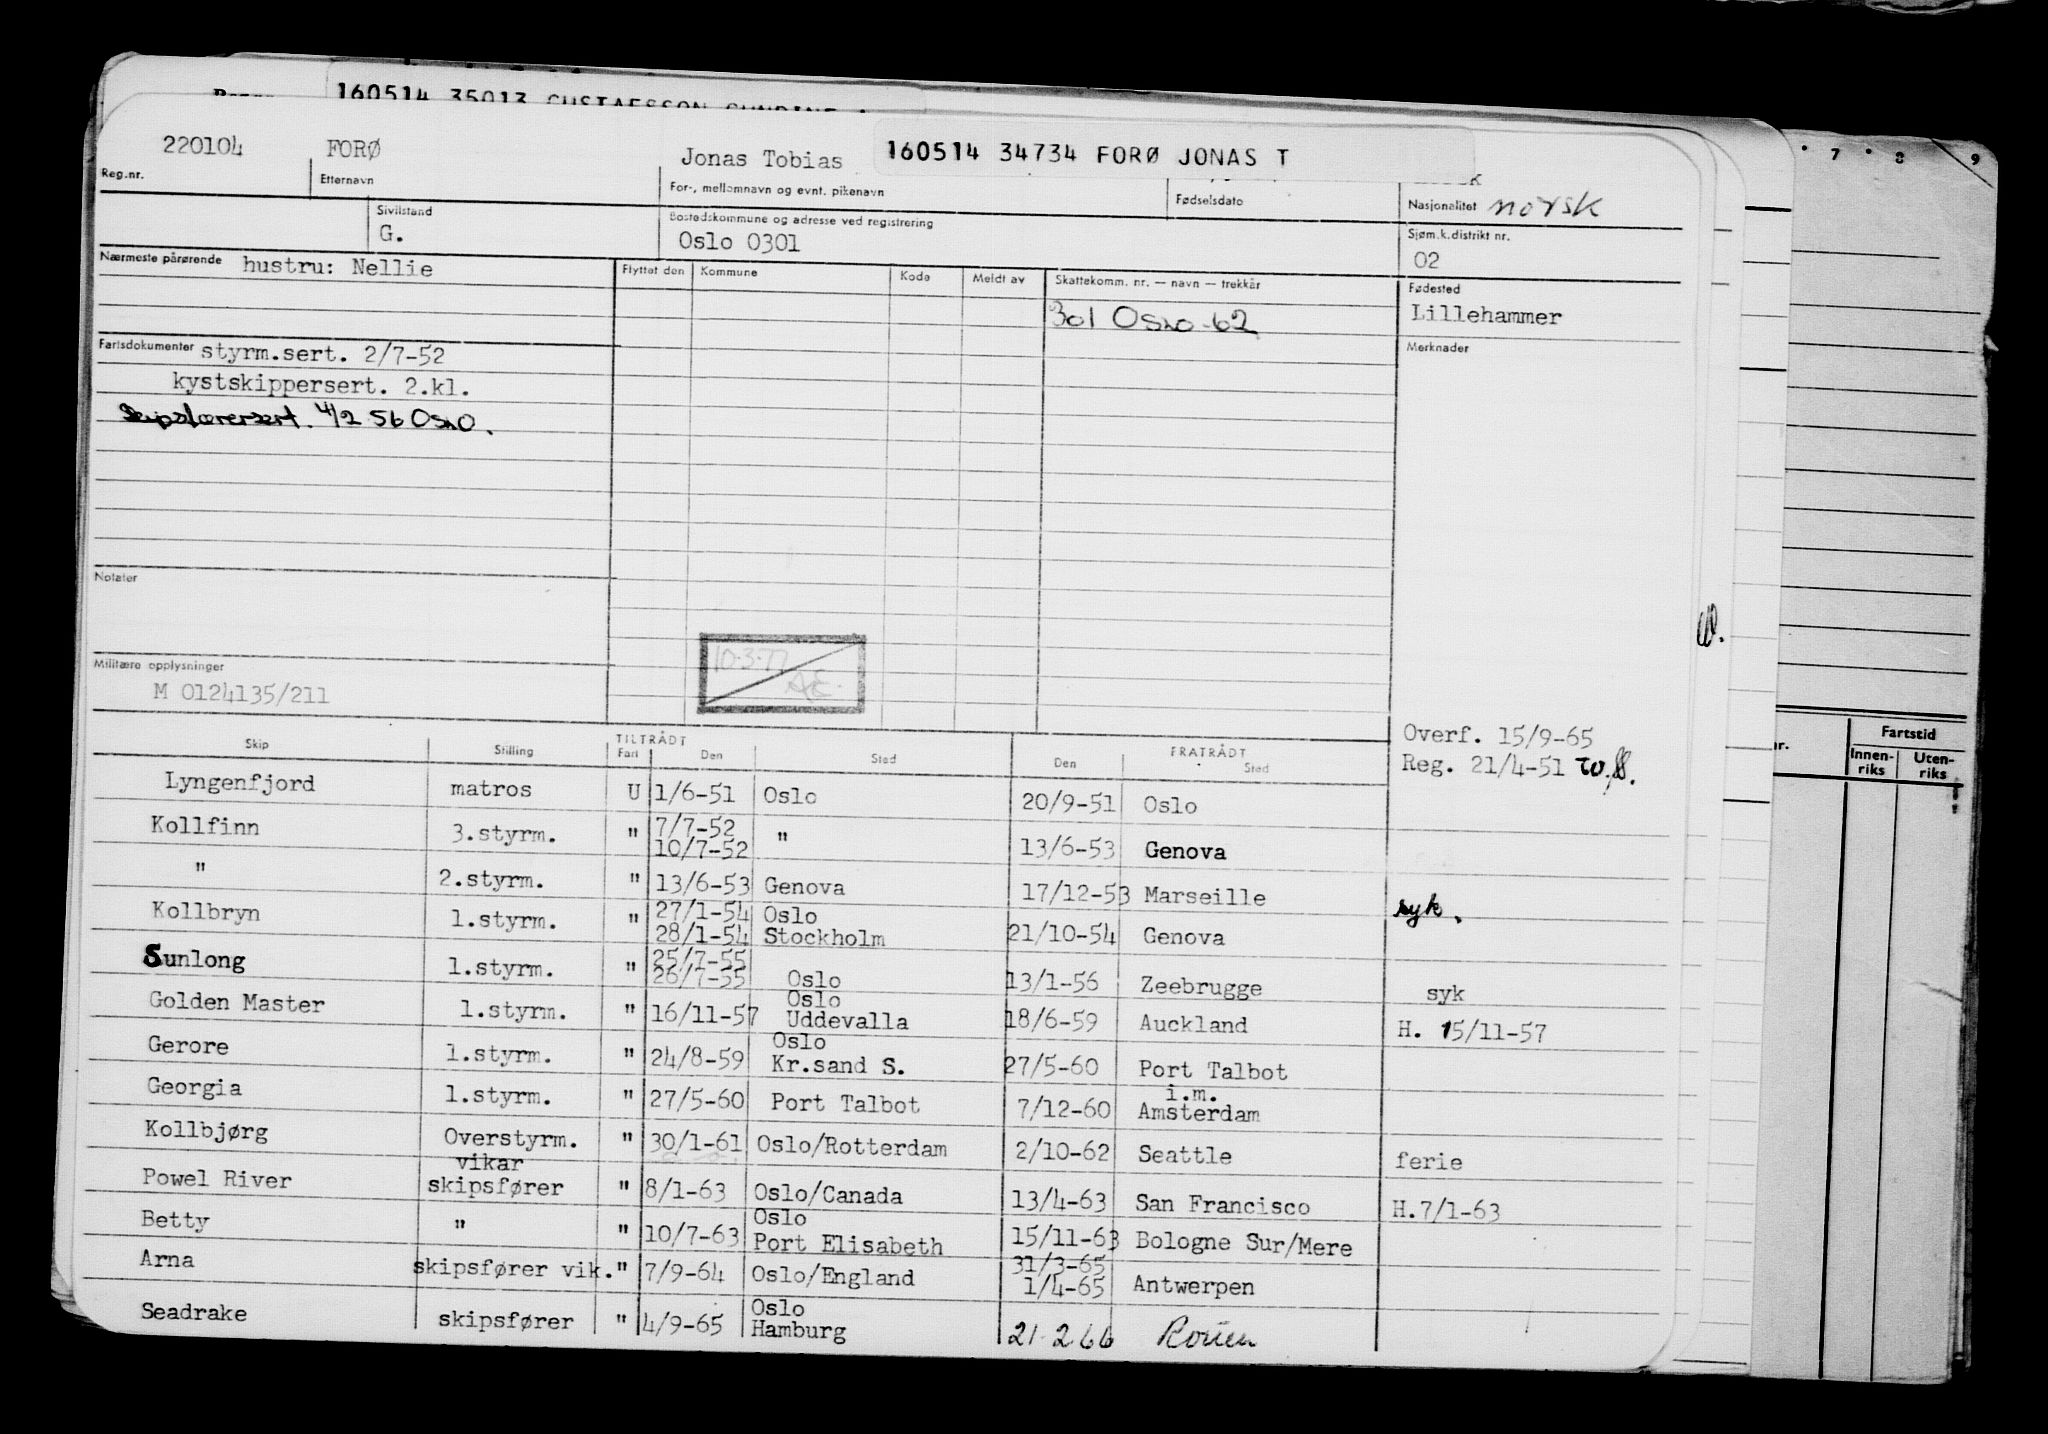 160514 35013 GUSTAFSSON
220104 FORØ Jonas Tobias 160514 34734 FORØ JONAS T
Reg.nr. Etternavn For-, mellomnavn og evnt. pikenavn Fødselsdato Nasjonalitet norsk
Sivilstand Bostedskommune og adresse ved registrering Sjøm.k.distrikt nr.
G. Oslo 0301 02
Nærmeste pårørende hustru: Nellie Flyttet den Kommune Kode Meldt av Skattekomm. nr. — navn — trekkår Fødested
301 Oslo-62 Lillehammer
Fartsdokumenter styrm.sert. 2/7-52 Merknader
kystskippersert. 2.kl.
Skipsførersert. 4/2 56 Oslo.
Notater
10.3.77
Militære opplysninger
M 0124135/211
Overf. 15/9-65
Reg. 21/4-51
Skip Stilling TILTRÅDT Fart Den Sted FRATRÅDT Den Sted
Lyngenfjord matros U 1/6-51 Oslo 20/9-51 Oslo
Kollfinn 3.styrm. " 7/7-52 10/7-52 " 13/6-53 Genova
" 2.styrm. " 13/6-53 Genova 17/12-53 Marseille syk.
Kollbryn 1.styrm. " 27/1-54 Oslo 28/1-54 Stockholm 21/10-54 Genova
Sunlong 1.styrm. " 25/7-55 26/7-55 Oslo 13/1-56 Zeebrugge syk
Golden Master 1.styrm. " 16/11-57 Oslo Uddevalla 18/6-59 Auckland H. 15/11-57
Gerore 1.styrm. " 24/8-59 Oslo Kr.sand S. 27/5-60 Port Talbot
Georgia 1.styrm. " 27/5-60 Port Talbot 7/12-60 i.m. Amsterdam
Kollbjørg Overstyrm. " 30/1-61 Oslo/Rotterdam 2/10-62 Seattle ferie
Powel River vikar skipsfører " 8/1-63 Oslo/Canada 13/4-63 San Francisco H.7/1-63
Betty " " 10/7-63 Oslo Port Elisabeth 15/11-63 Bologne Sur/Mere
Arna skipsfører vik. " 7/9-64 Oslo/England 31/3-65 1/4-65 Antwerpen
Seadrake skipsfører " 4/9-65 Oslo Hamburg 21.2 66 Rouen
7 8 9
Fartstid
Innen-riks Uten-riks